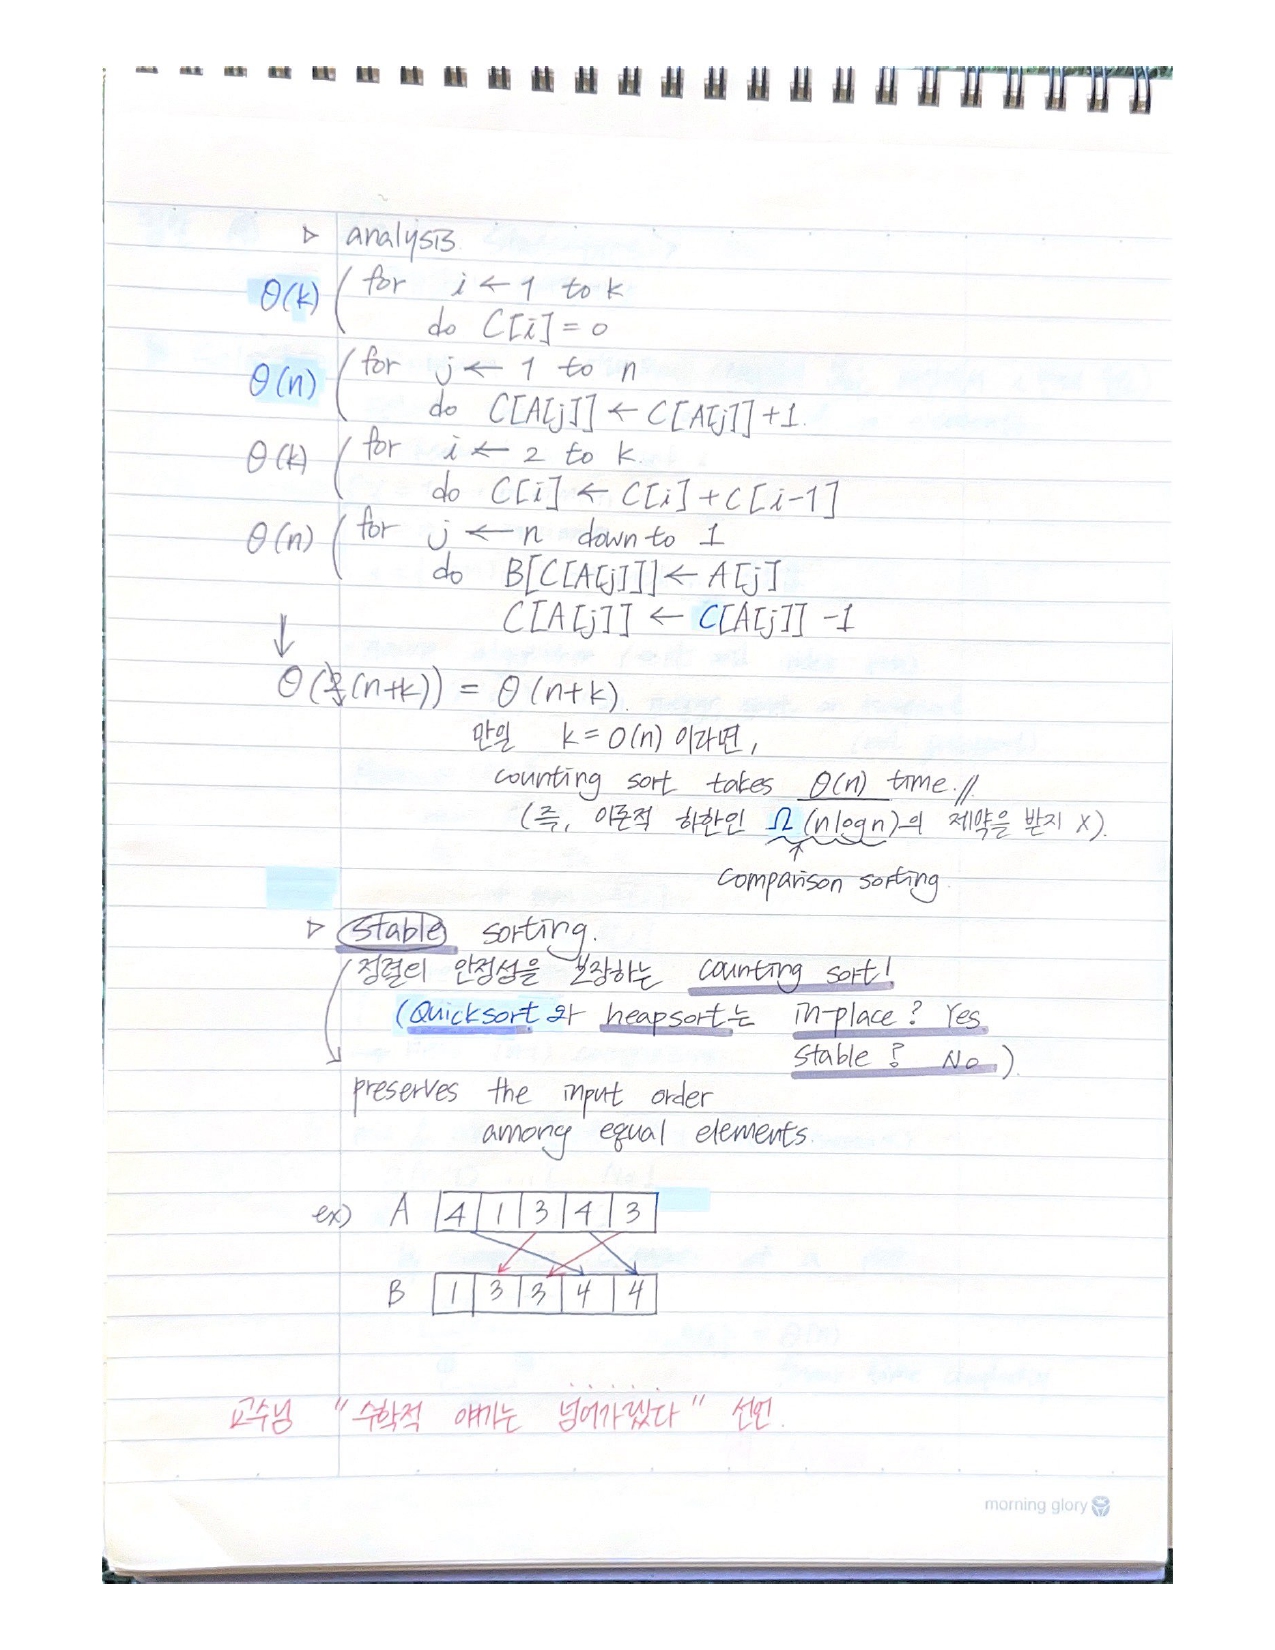 ▷ analysis.
θ(k) ( for i ← 1 to k
do C[i] = 0
θ(n) ( for j ← 1 to n
do C[A[j]] ← C[A[j]] + 1.
θ(k) ( for i ← 2 to k.
do C[i] ← C[i] + C[i-1]
θ(n) ( for j ← n down to 1
do B[C[A[j]]] ← A[j]
C[A[j]] ← C[A[j]] - 1
↓
θ(2(n+k)) = θ(n+k).
만일 k = O(n) 이라면,
counting sort takes θ(n) time.//
(즉, 이론적 하한인 Ω(nlogn)의 제약을 받지 X).
↑
comparison sorting
▷ stable sorting.
정렬의 안정성을 보장하는 counting sort!
(Quicksort와 heapsort는 in-place? Yes
stable? No.).
preserves the input order
among equal elements.
ex) A 4 1 3 4 3
B 1 3 3 4 4
교수님 "수학적 얘기는 넘어가겠다" 선언.
morning glory